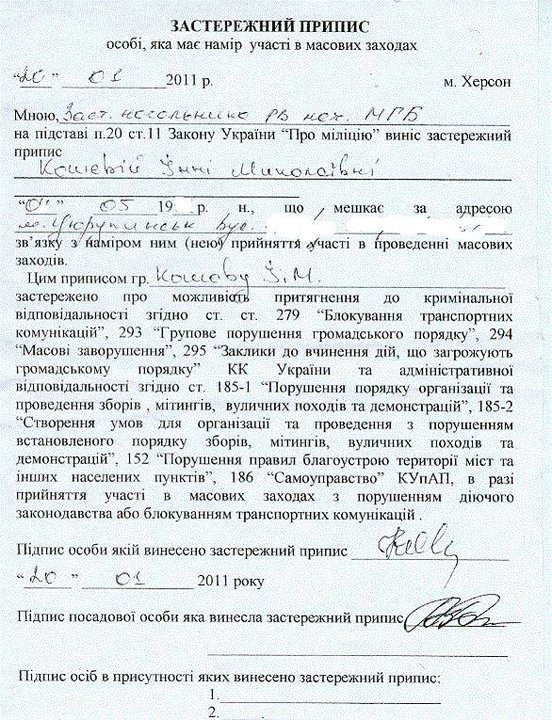 ЗАСТЕРЕЖНИЙ ПРИПИС
особі, яка має намір участі в масових заходах
“20” 01 2011 р. м. Херсон
Мною, Заст. начальника РВ пол. МГБ
на підставі п.20 ст.11 Закону України “Про міліцію” виніс застережний
припис
Кошевій Інні Миколаївні
“01” 05 19 р. н., що мешкає за адресою
м. Цюрупинськ вул.
зв’язку з наміром ним (нею) прийняття участі в проведенні масових
заходів.
Цим приписом гр. Кошеву І.М.
застережено про можливість притягнення до кримінальної
відповідальності згідно ст. ст. 279 “Блокування транспортних
комунікацій”, 293 “Групове порушення громадського порядку”, 294
“Масові заворушення”, 295 “Заклики до вчинення дій, що загрожують
громадському порядку” КК України та адміністративної
відповідальності згідно ст. 185-1 “Порушення порядку організації та
проведення зборів , мітингів, вуличних походів та демонстрацій”, 185-2
“Створення умов для організації та проведення з порушенням
встановленого порядку зборів, мітингів, вуличних походів та
демонстрацій”, 152 “Порушення правил благоустрою території міст та
інших населених пунктів”, 186 “Самоуправство” КУпАП, в разі
прийняття участі в масових заходах з порушенням діючого
законодавства або блокуванням транспортних комунікацій .
Підпис особи якій винесено застережний припис
“20” 01 2011 року
Підпис посадової особи яка винесла застережний припис
Підпис осіб в присутності яких винесено застережний припис:
1.
2.